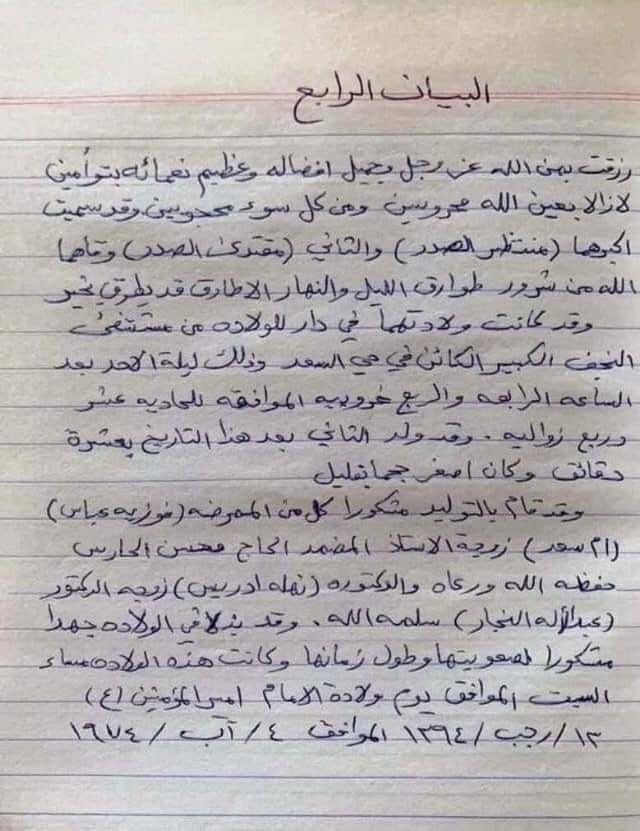 البيان الرابع
رزقت بمن الله عز وجل وجميل افضاله وعظيم نعمائه بتوأمين
لازالا بعين الله محروسين ومن كل سوء محجوبين وقد سميت
اكبرهما (منتظر الصدر) والثاني (مقتدى الصدر) وقاهما
الله من شرور طوارق الليل والنهار الا طارق قد يطرق بخير
وقد كانت ولادتهما في دار للولاده من مستشفى
النجف الكبير الكائن في حي السعد وذلك ليلة الاحد بعد
الساعه الرابعه والربع غروبيه الموافقه للحاديه عشر
وربع زواليه . وقد ولد الثاني بعد هذا التاريخ بعشرة
دقائق وكان اصغر حجما بقليل
وقد قام بالتوليد مشكورا كل من الممرضه (فوزيه عباس)
(ام سعد) زوجة الاستاذ المضمد الحاج محسن الحارس
حفظه الله ورعاه والدكتوره (نهله ادريس) زوجه الدكتور
(عبدالاله النجار) سلمه الله . وقد بذلا في الولاده جهدا
مشكورا لصعوبتها وطول زمانها وكانت هذه الولاده مساء
السبت الموافق يوم ولادة الامام امير المؤمنين (ع)
١٣/رجب/١٣٩٤ الموافق ٤/آب/١٩٧٤